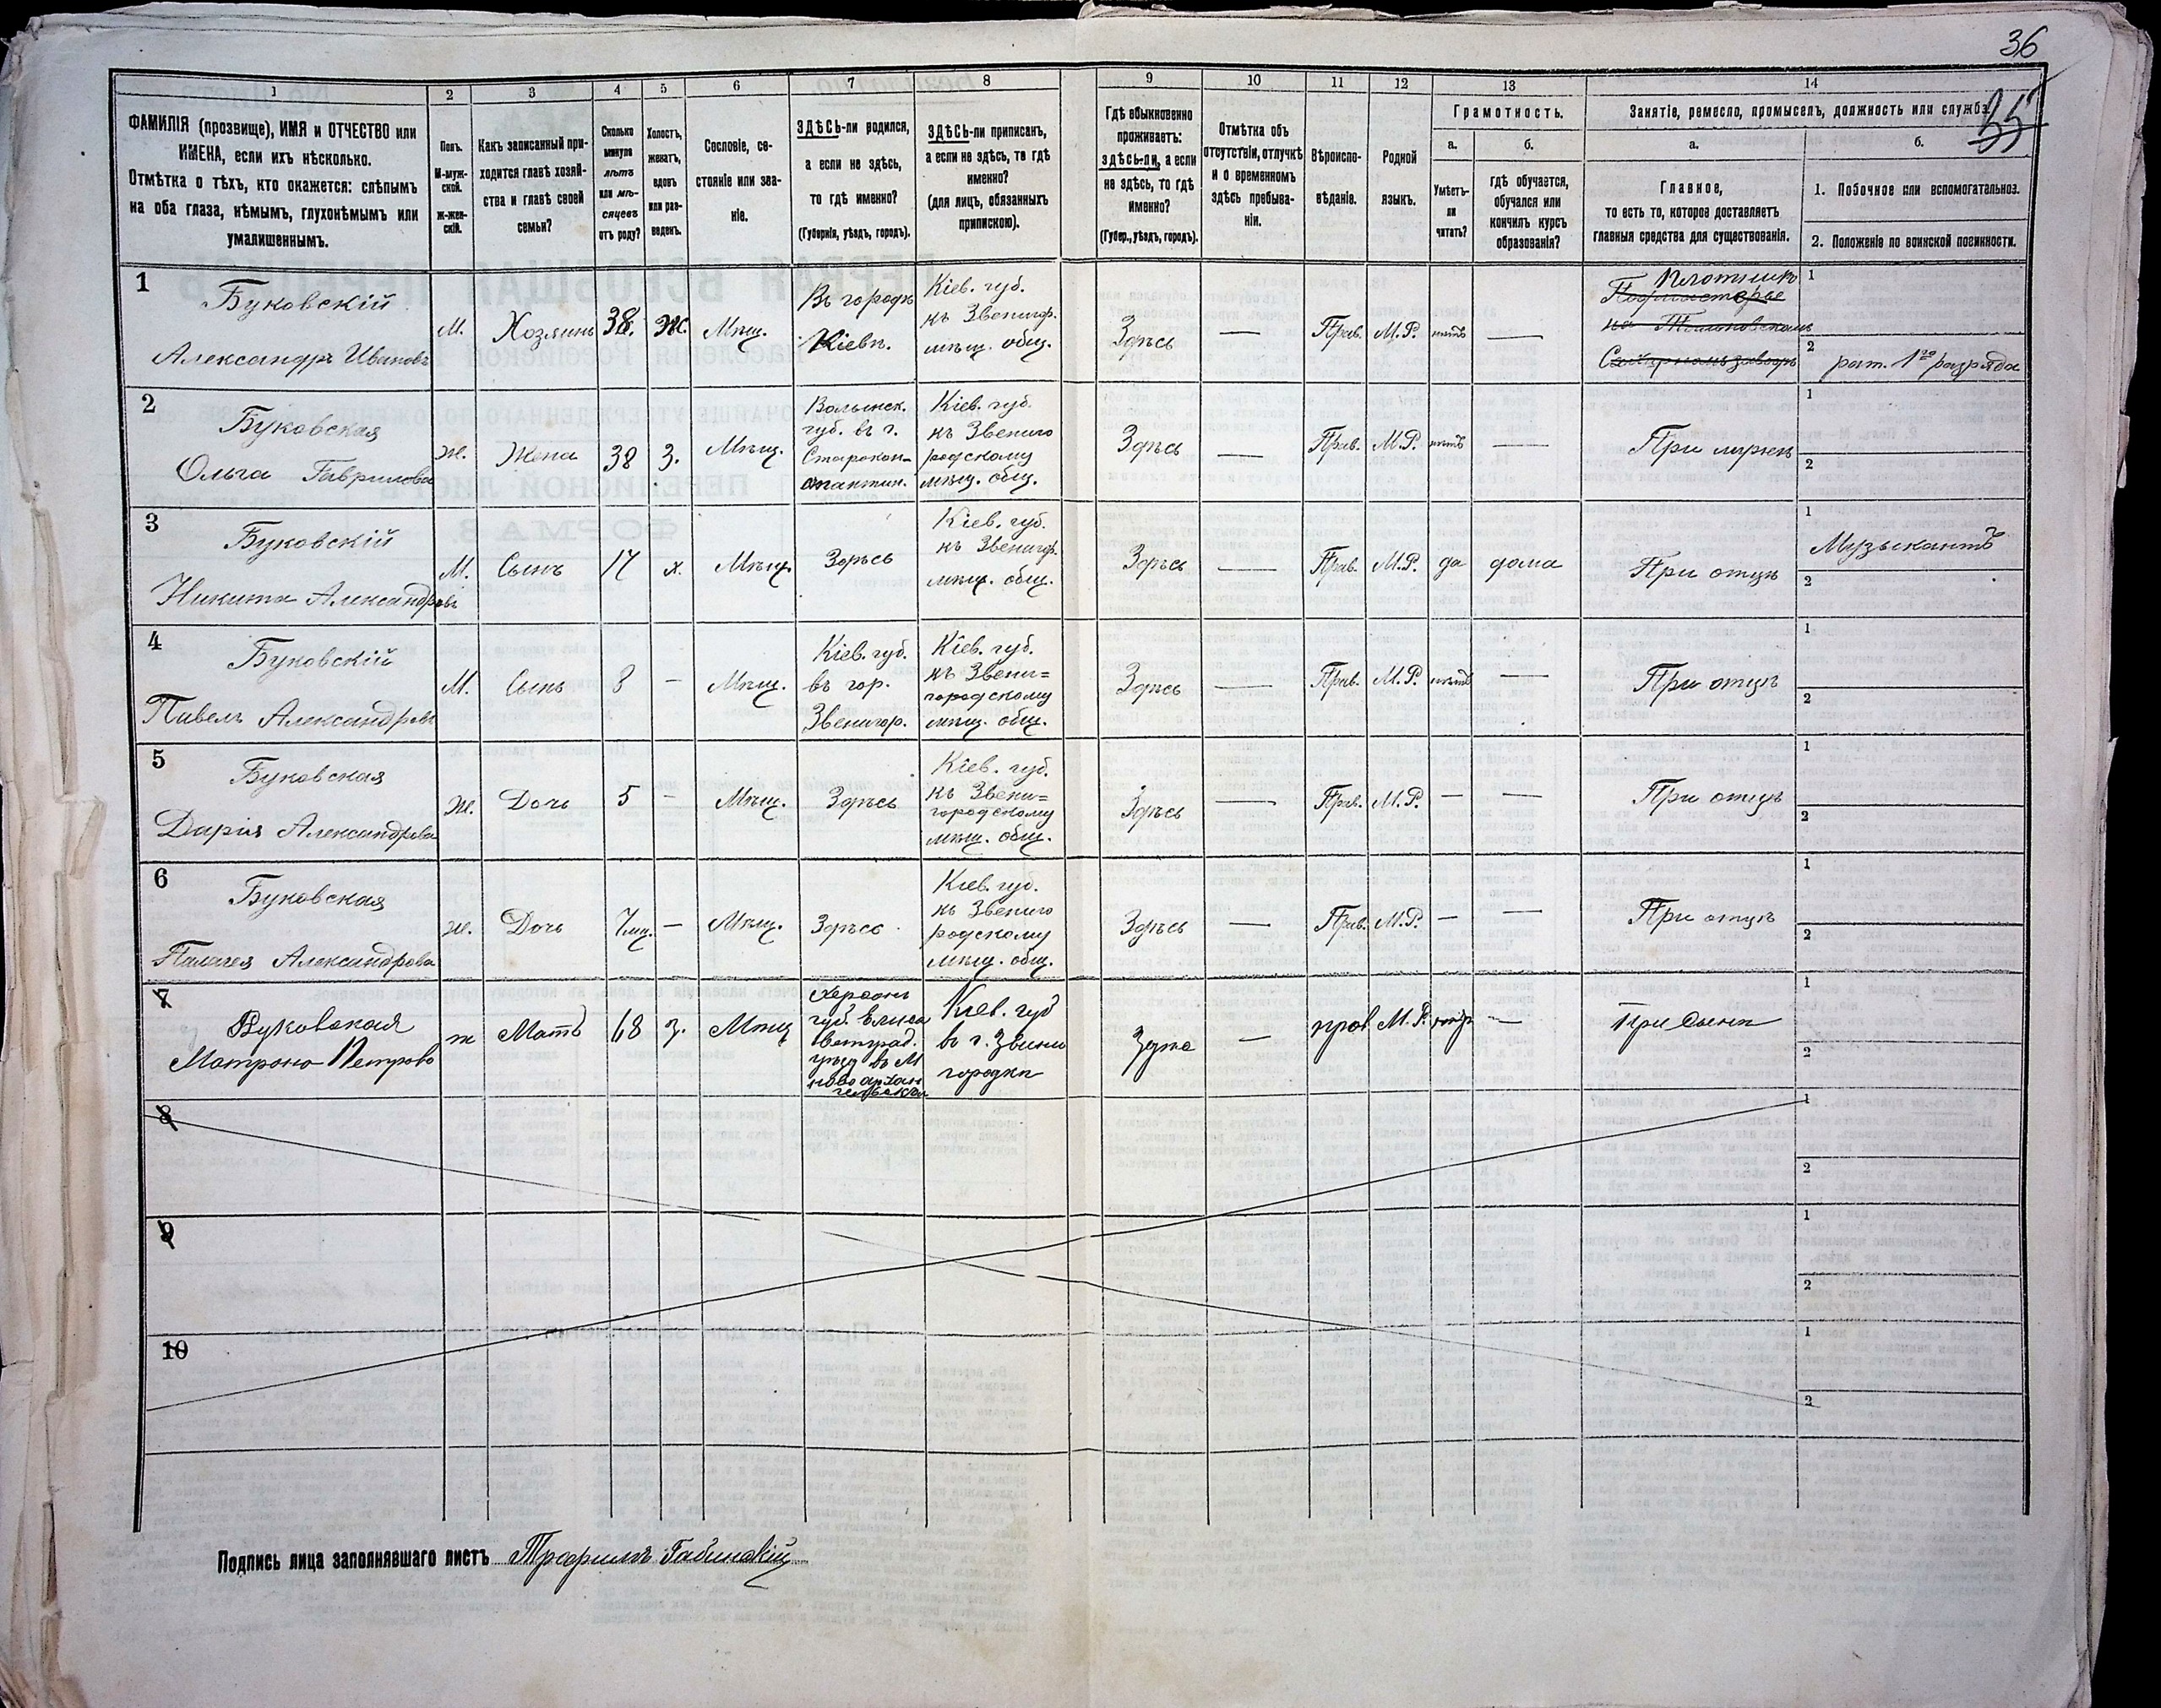 36
35
1 2 3 4 5 6 7 8 9 10 11 12 13 14
ФАМИЛІЯ (прозвище), ИМЯ и ОТЧЕСТВО или
ИМЕНА, если ихъ нѣсколько.
Отмѣтка о тѣхъ, кто окажется: слѣпымъ
на оба глаза, нѣмымъ, глухонѣмымъ или
умалишеннымъ.
Полъ.
М-муж-
ской.
ж-жен-
скій.
Какъ записанный при-
ходится главѣ хозяй-
ства и главѣ своей
семьи?
Сколько
минуло
лѣтъ
или мѣ-
сяцевъ
отъ роду?
Холостъ,
женатъ,
вдовъ
или раз-
веденъ.
Сословіе, со-
стояніе или зва-
ніе.
ЗДѢСЬ-ли родился,
а если не здѣсь,
то гдѣ именно?
(Губернія, уѣздъ, городъ).
ЗДѢСЬ-ли приписанъ,
а если не здѣсь, то гдѣ
именно?
(для лицъ, обязанныхъ
припискою).
Гдѣ обыкновенно
проживаетъ:
здѣсь-ли, а если
не здѣсь, то гдѣ
именно?
(Губер., уѣздъ, городъ).
Отмѣтка объ
отсутствіи, отлучкѣ
и о временномъ
здѣсь пребыва-
ніи.
Вѣроиспо-
вѣданіе.
Родной
языкъ.
Грамотность.
а.
Умѣетъ-
ли
читать?
б.
гдѣ обучается,
обучался или
кончилъ курсъ
образованія?
Занятіе, ремесло, промыселъ, должность или служба.
а.
Главное,
то есть то, которое доставляетъ
главныя средства для существованія.
б.
1. Побочное или вспомогательное.
2. Положеніе по воинской повинности.
1
Буковскій
Александръ Ивановъ
М.
Хозяинъ
38.
Ж.
Мѣщ.
Въ городѣ
Кіевѣ.
Кіев. губ.
къ Звенигор.
мѣщ. общ.
Здѣсь
—
Прав.
М.Р.
нѣтъ
—
Плотникъ
Подмастерье
на Тальновскомъ
Сахарномъ заводѣ
1
2
рат. 1го разряда
2
Буковская
Ольга Гаврилова
ж.
Жена
38
З.
Мѣщ.
Волынск.
губ. въ г.
Старокон-
стантин.
Кіев. губ.
къ Звениго
родскому
мѣщ. общ.
Здѣсь
—
Прав.
М.Р.
нѣтъ
—
При мужѣ
1
2
3
Буковскій
Никита Александровъ
М.
Сынъ
17
х.
Мѣщ.
Здѣсь
Кіев. губ.
къ Звенигор.
мѣщ. общ.
Здѣсь
—
Прав.
М.Р.
да
дома
При отцѣ
1
Музыкантъ
2
4
Буковскій
Павелъ Александровъ
М.
Сынъ
8
—
Мѣщ.
Кіев. губ.
въ гор.
Звенигор.
Кіев. губ.
къ Звени=
городскому
мѣщ. общ.
Здѣсь
—
Прав.
М.Р.
нѣтъ
—
При отцѣ
1
2
5
Буковская
Дарія Александрова
ж.
Дочь
5
—
Мѣщ.
Здѣсь
Кіев. губ.
къ Звени=
городскому
мѣщ. общ.
Здѣсь
—
Прав.
М.Р.
—
—
При отцѣ
1
2
6
Буковская
Палагея Александрова
ж.
Дочь
7 мц.
—
Мѣщ.
Здѣсь
Кіев. губ.
къ Звениго
родскому
мѣщ. общ.
Здѣсь
—
Прав.
М.Р.
—
—
При отцѣ
1
2
7
Буковская
Матрона Петрова
ж
Мать
68
Мѣщ
Херсонъ
губ. Елиса
ветград.
уѣзд въ М
ново архан
гельскѣ
Кіев. губ
въ г. Звени
городкѣ
—
прав
М.Р.
—
При сынѣ
1
2
8
1
2
9
1
2
10
1
2
Подпись лица заполнявшаго листъ